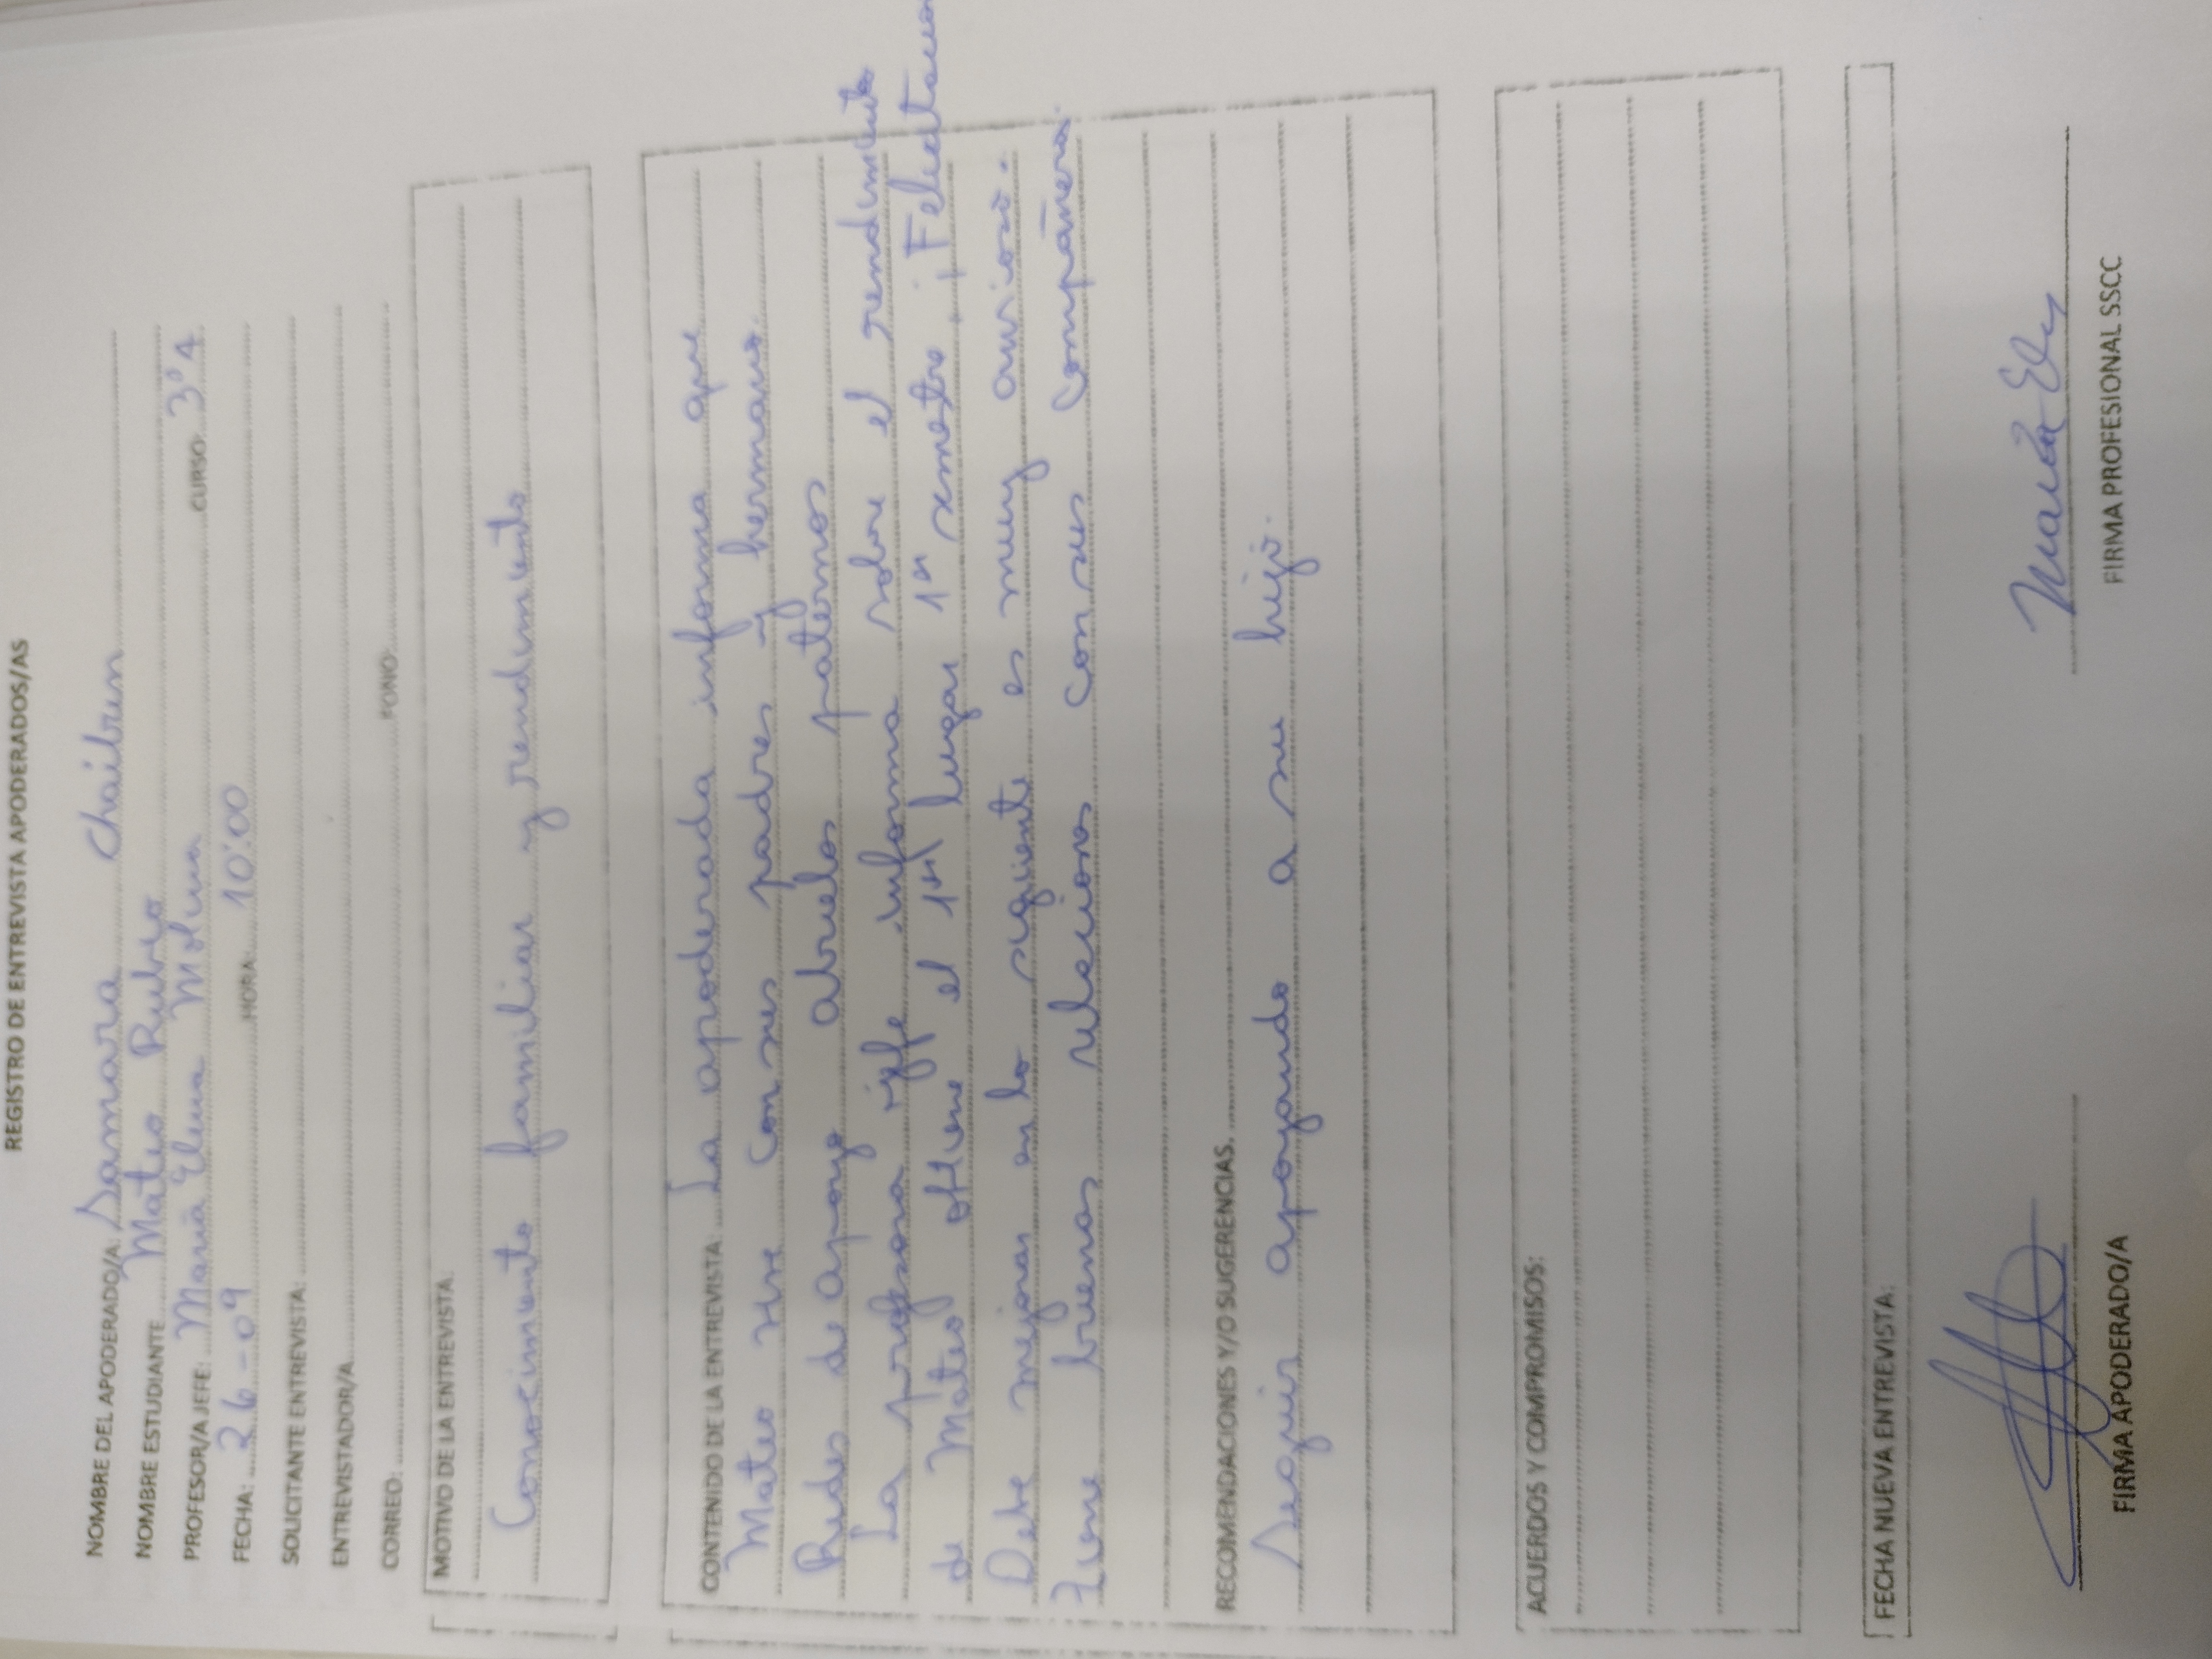 REGISTRO DE ENTREVISTA APODERADOS/AS
NOMBRE DEL APODERADO/A: Samara Chaibun
NOMBRE ESTUDIANTE Mateo Rubio
PROFESOR/A JEFE: Maria Elena Molina CURSO 3°4
FECHA: 26-09 HORA 10:00
SOLICITANTE ENTREVISTA:
ENTREVISTADOR/A
CORREO: FONO
MOTIVO DE LA ENTREVISTA:
Conocimiento familiar y rendimiento
CONTENIDO DE LA ENTREVISTA: La apoderada informa que
Mateo vive con sus padres y hermano.
Redes de apoyo abuelos paternos
La profesora jefe informa sobre el rendimiento
de Mateo obtiene el 1er lugar 1er semestre. ¡Felicitacion
Debe mejorar en lo siguiente es muy ansioso.
Tiene buenas relaciones con sus compañeros.
RECOMENDACIONES Y/O SUGERENCIAS.
Seguir apoyando a su hijo.
ACUERDOS Y COMPROMISOS:
FECHA NUEVA ENTREVISTA:
María El
FIRMA APODERADO/A FIRMA PROFESIONAL SSCC